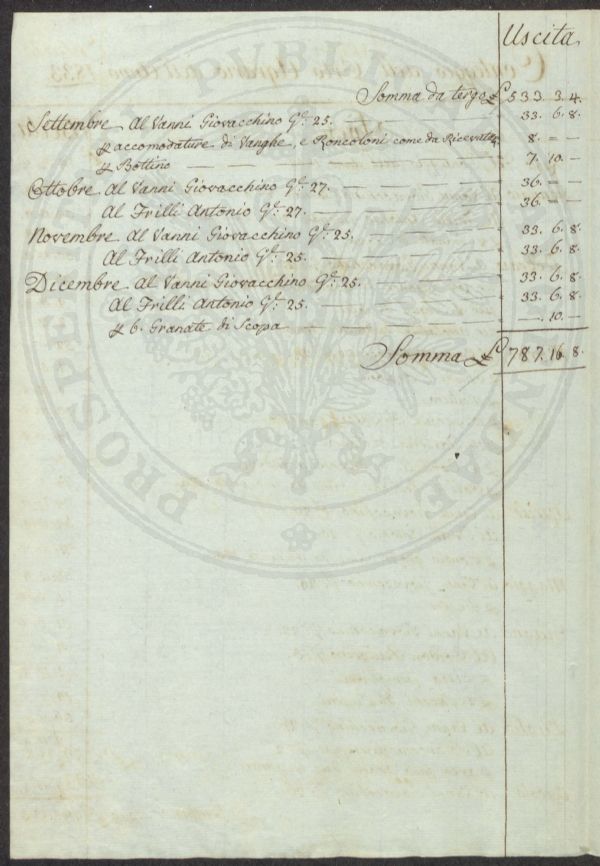 Uscita
Somma da tergo £ 533. 3. 4.
Settembre. Al Vanni Giovacchino G.te 25. 33. 6. 8.
p accomodature di Vanghe, e Roncoloni come da Ricevute 8. = —
p Bottino 7. 10. —
Ottobre. Al Vanni Giovacchino G.te 27. 36. = —
Al Frilli Antonio G.te 27. 36. = —
Novembre. Al Vanni Giovacchino G.te 25. 33. 6. 8.
Al Frilli Antonio G.te 25. 33. 6. 8.
Dicembre. Al Vanni Giovacchino G.te 25. 33. 6. 8.
Al Frilli Antonio G.te 25. 33. 6. 8.
p 6. Granate di Scopa —. 10. —
Somma £ 787. 16. 8.